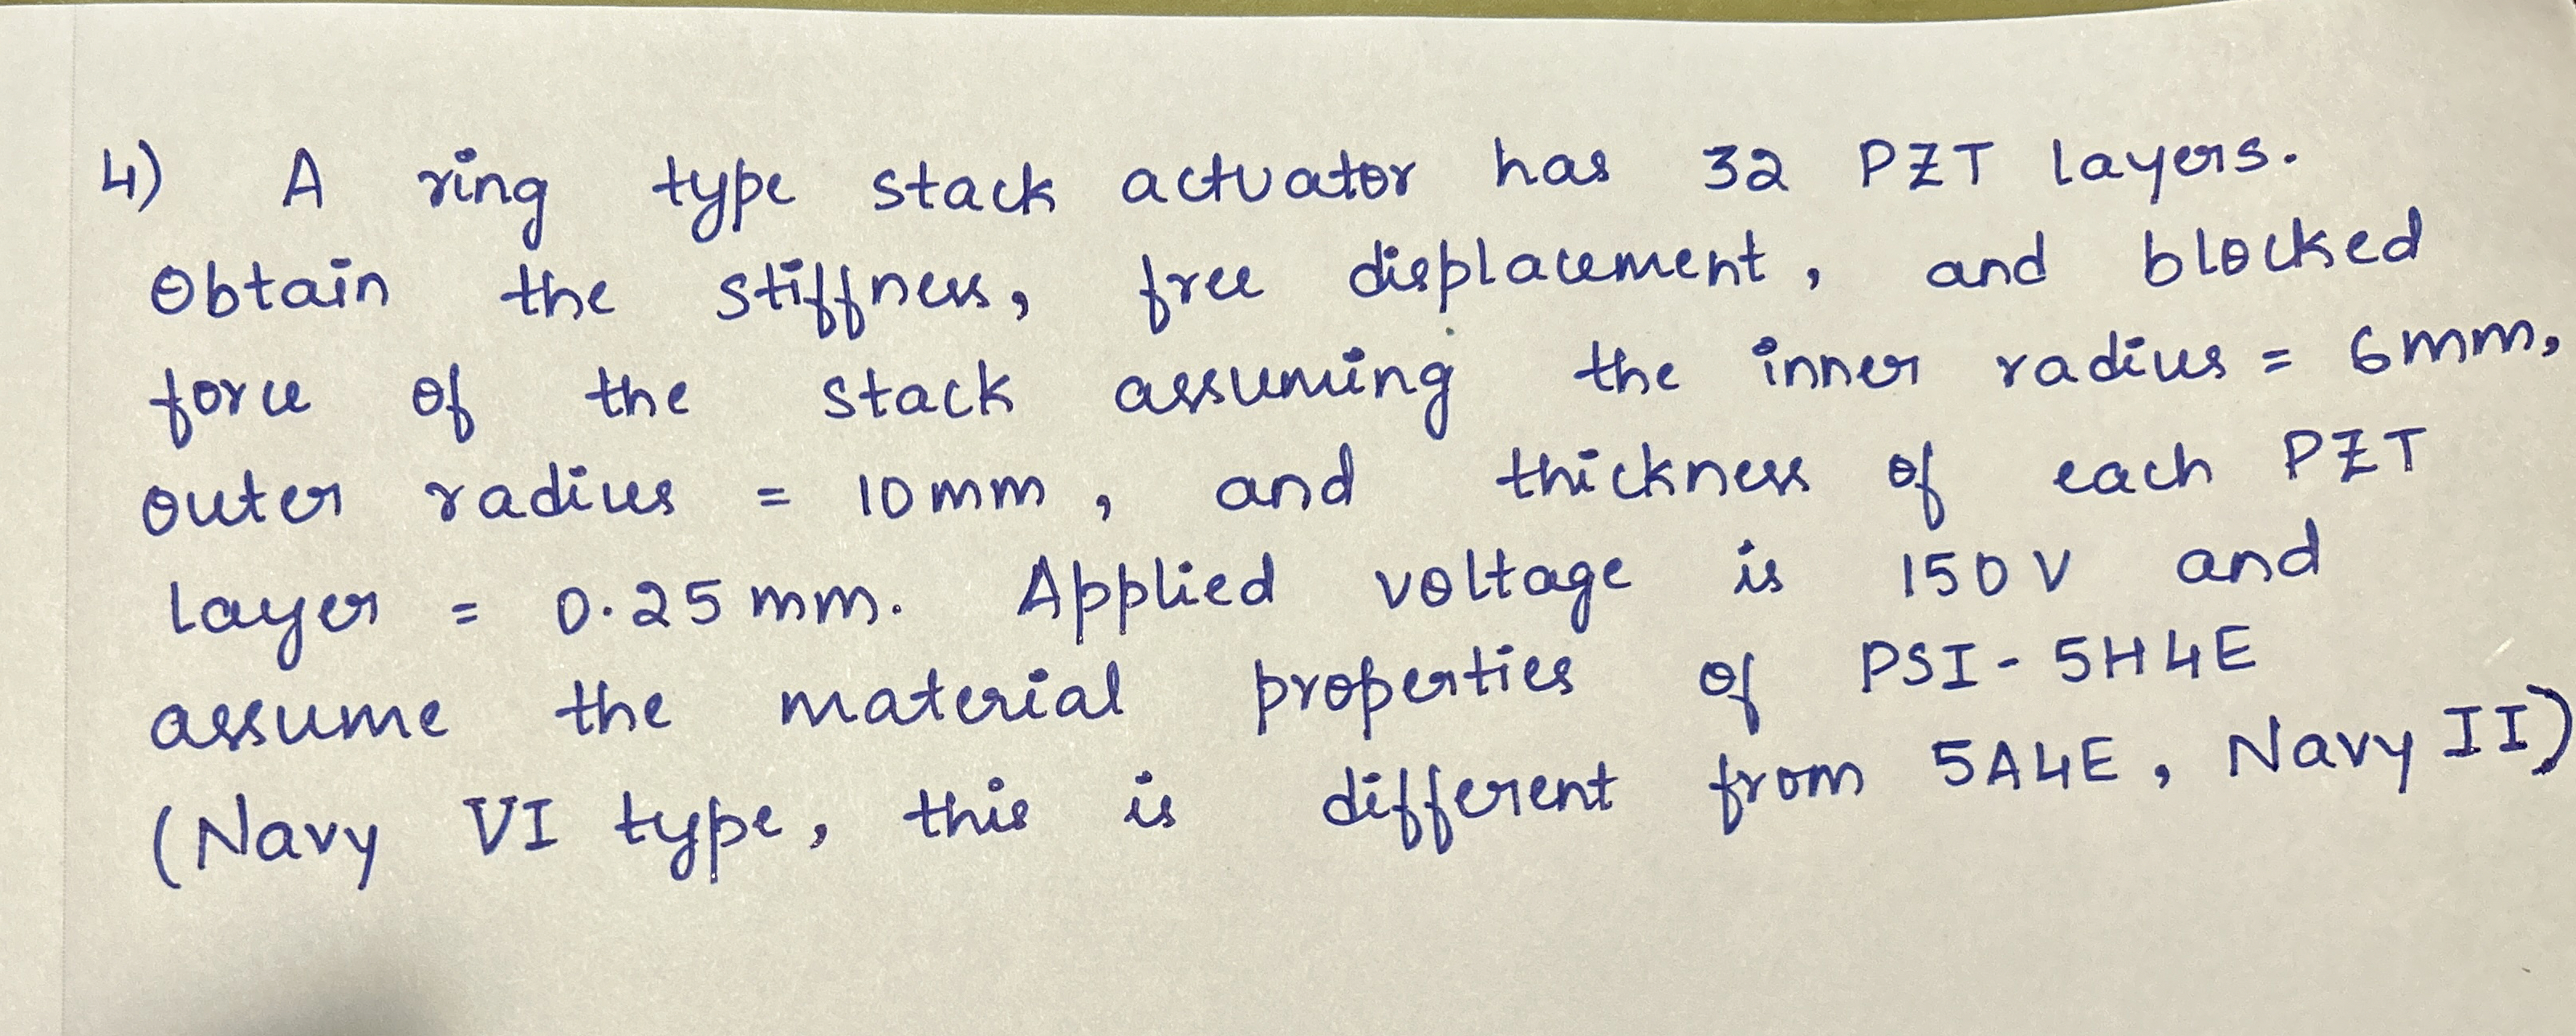 4) A ring type stack actuator has 32 PZT layers.
Obtain the stiffness, free displacement, and blocked
force of the stack assuming the inner radius = 6mm,
outer radius = 10mm, and thickness of each PZT
layer = 0.25mm. Applied voltage is 150V and
assume the material properties of PSI-5H4E
(Navy VI type, this is different from 5A4E, Navy II)